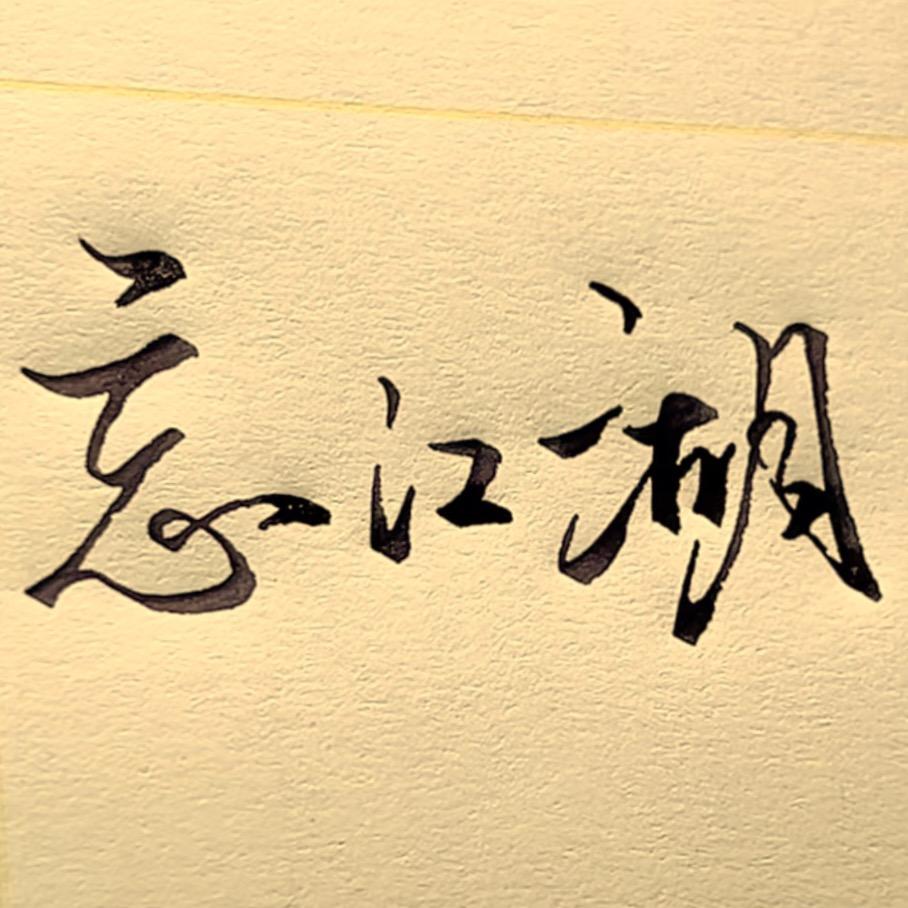 忘江湖